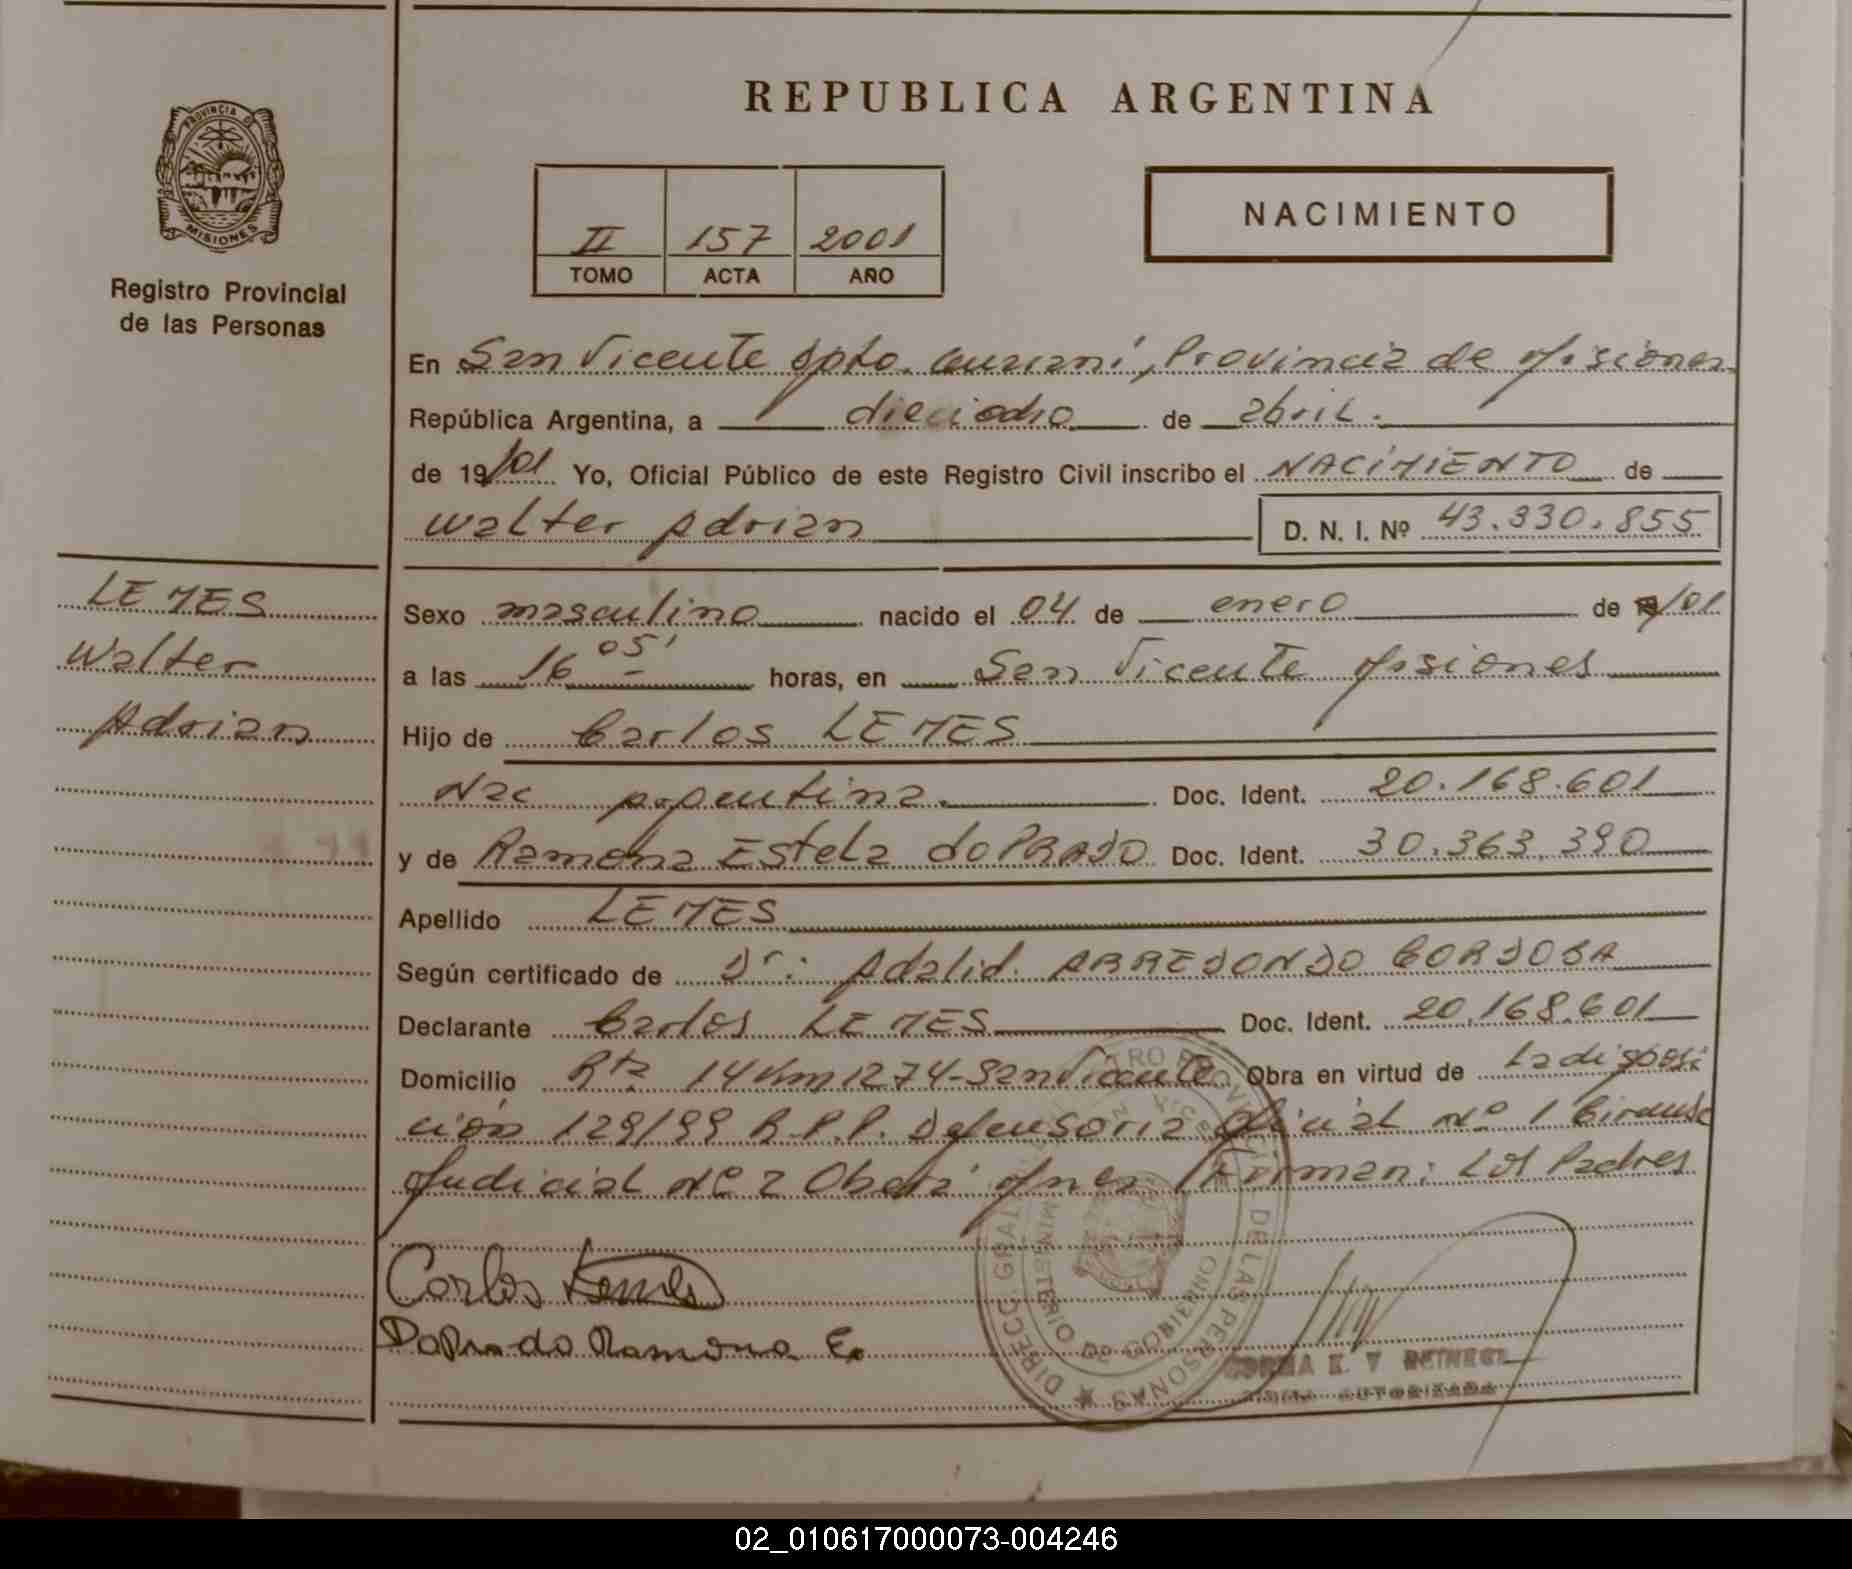 REPUBLICA ARGENTINA
PROVINCIA D
MISIONES
Registro Provincial
de las Personas
II 157 2001
TOMO ACTA AÑO
NACIMIENTO
En San Vicente Dpto. Guarani, Provincia de Misiones
República Argentina, a dieciocho de abril.
de 19/01 Yo, Oficial Público de este Registro Civil inscribo el NACIMIENTO de
Walter Adrian D. N. I. Nº 43.330.855
LEMES
Walter
Adrian
Sexo masculino nacido el 04 de enero de 19/01
a las 16 05' horas, en San Vicente Misiones
Hijo de Carlos LEMES
Nac Argentina. Doc. Ident. 20.168.601
y de Ramona Estela do PRADO Doc. Ident. 30.363.390
Apellido LEMES
Según certificado de Dr: Adalid ARREDONDO CORDOBA
Declarante Carlos LEMES Doc. Ident. 20.168.601
Domicilio Rta 14 Km 1274-San Vicente Obra en virtud de La disposi
ción 129/99 R.P.P. Defensoria Oficial Nº 1 Circunsc
Judicial Nº 2 Oberá Mnes Firman: Los Padres
Carlos Lemes
DoPrado Ramona E.
DIRECC. GRAL. DE LAS PERSONAS
MINISTERIO DE GOBIERNO
FIRMA AUTORIZADA
02_010617000073-004246